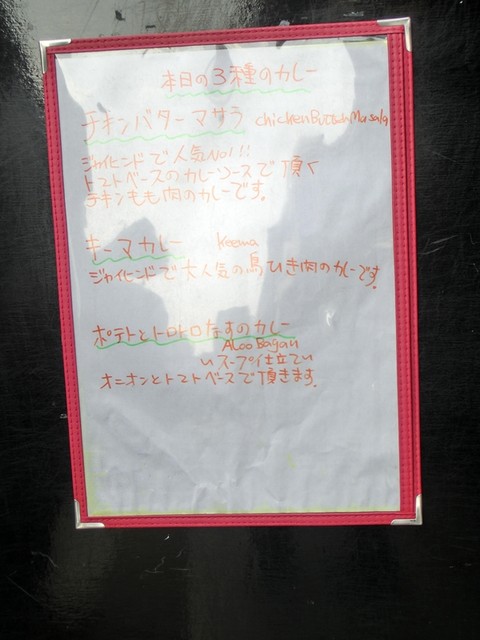 本日の3種のカレー
チキンバターマサラ chicken Butter Masala
ジャイヒンドで人気No1!!
トマトベースのカレーソースで頂く
チキンもも肉のカレーです。
キーマカレー Keema
ジャイヒンドで大人気の鳥ひき肉のカレーです。
ポテトとトロトロなすのカレー
Aloo Bagan
いスープ仕立てい
オニオンとトマトベースで頂きます。